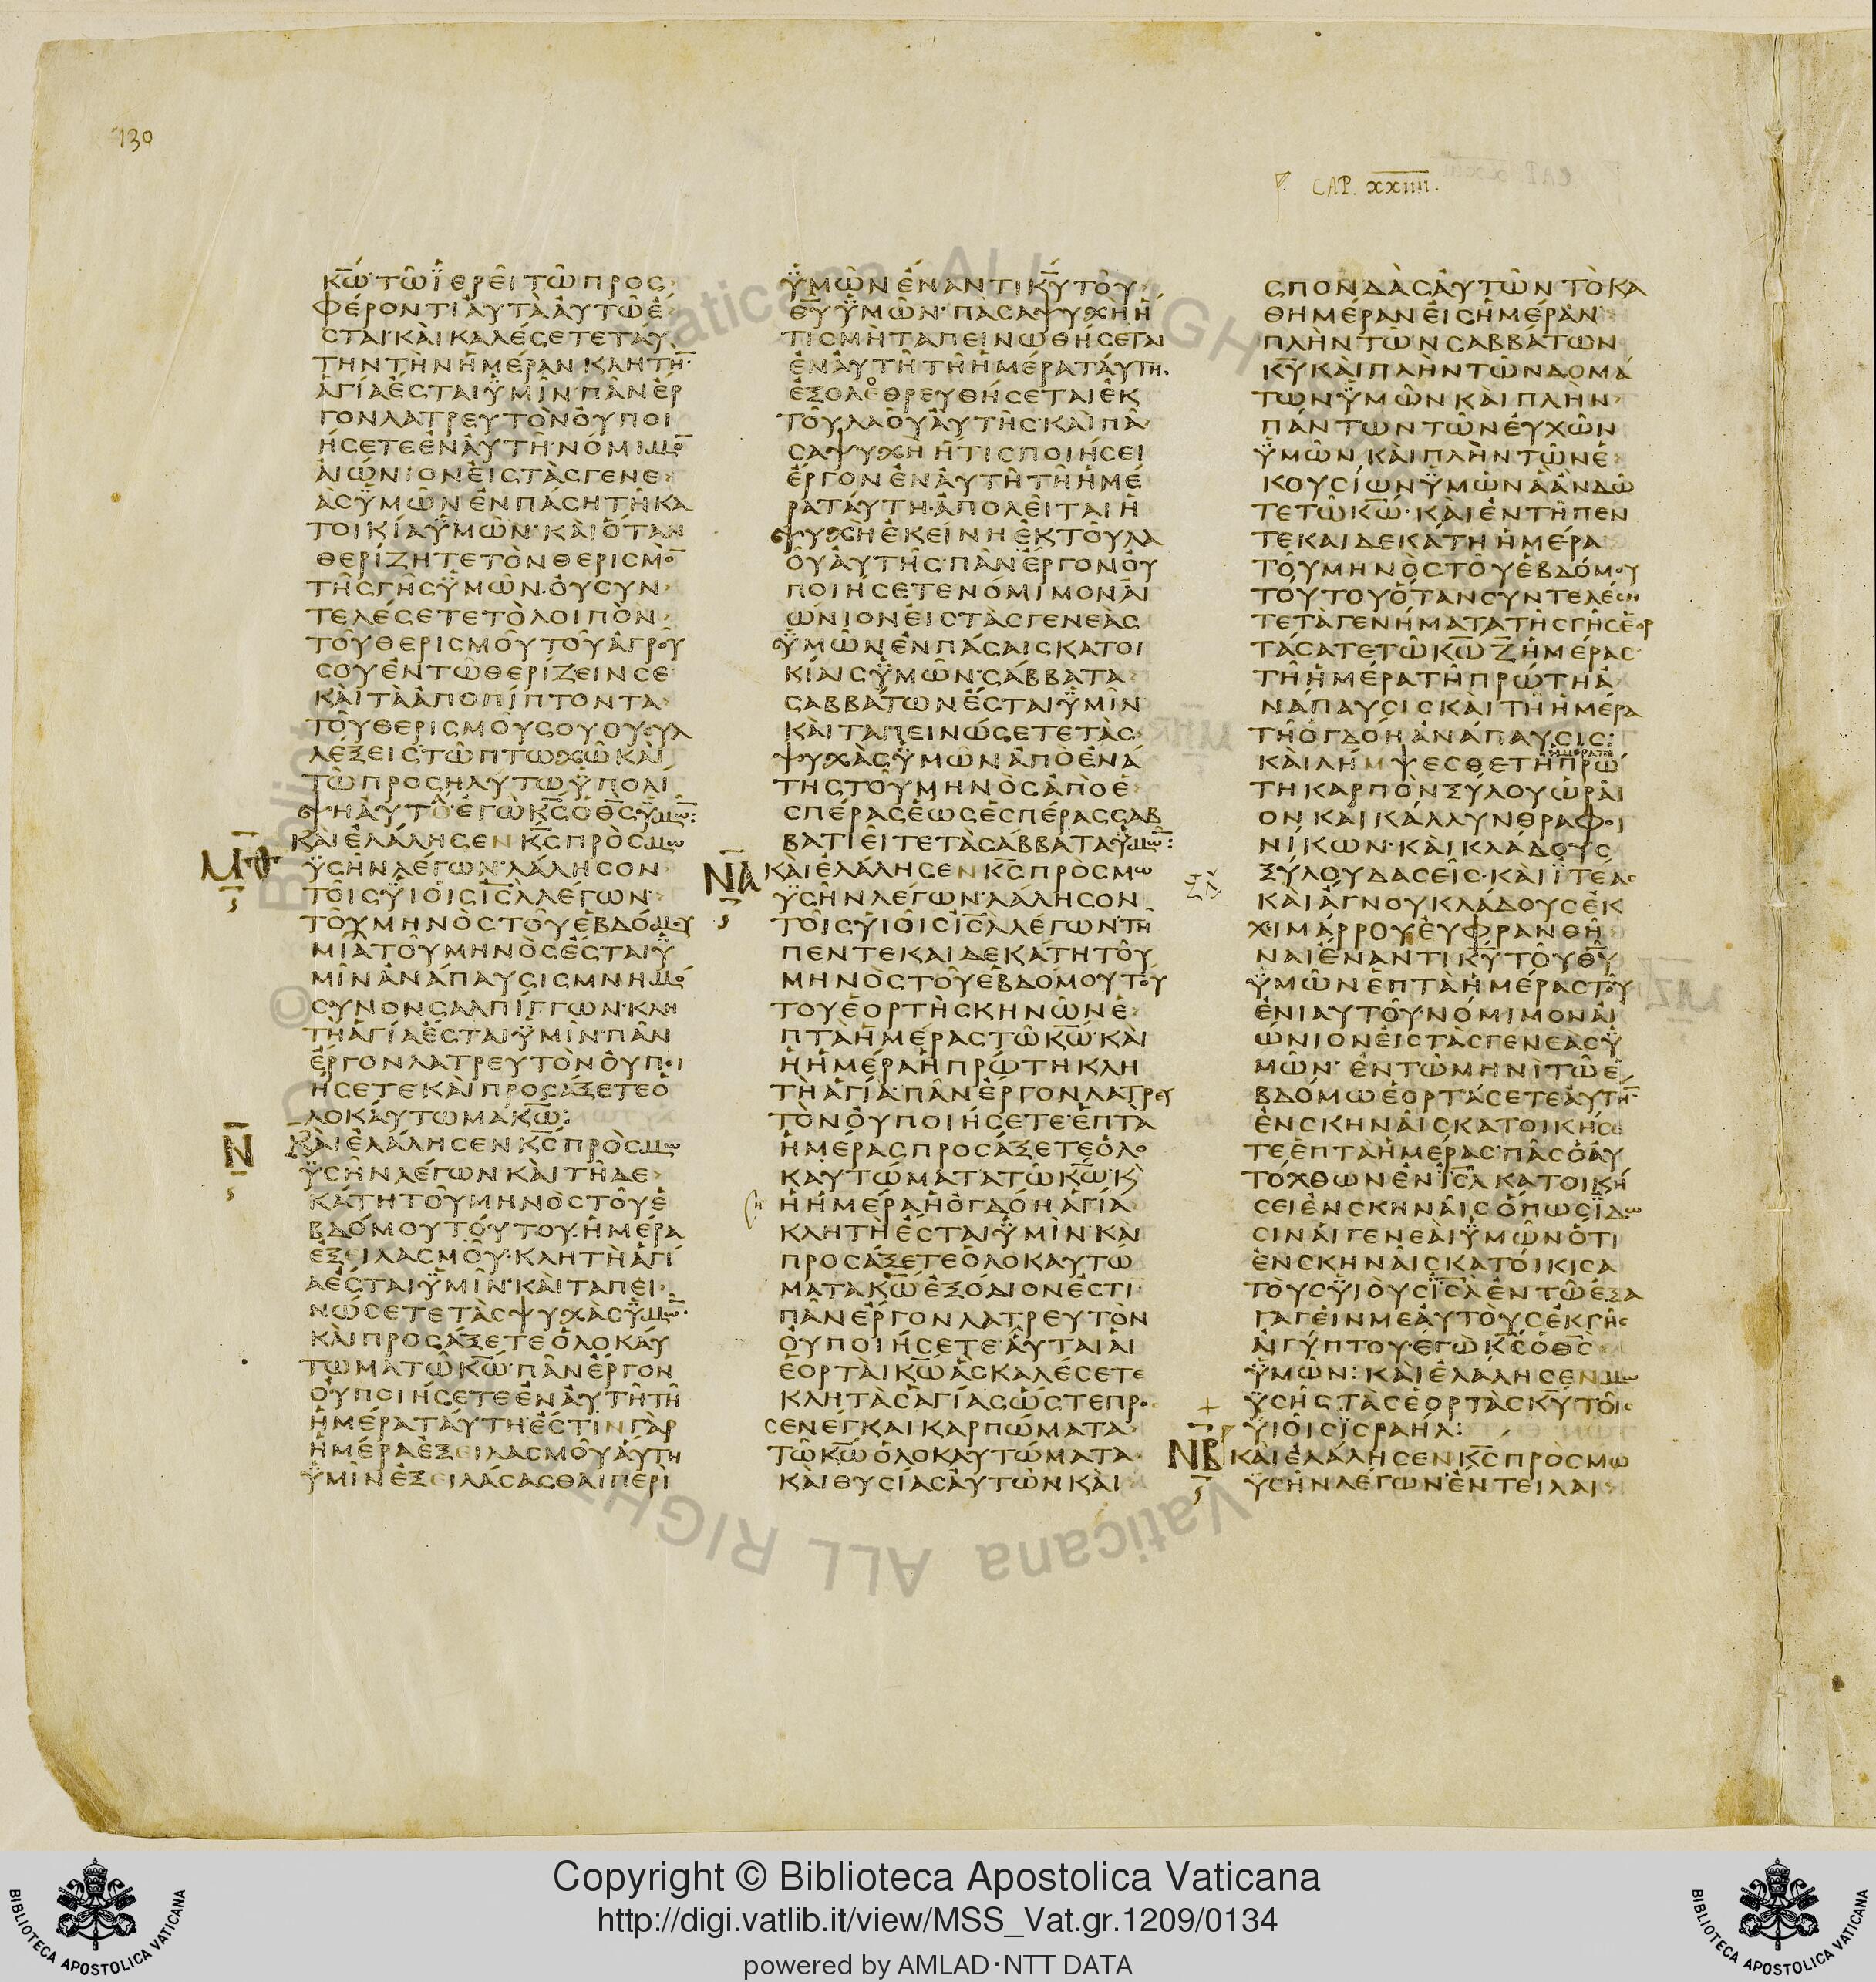 130
CAP. XXIIII.
κ̅ω̅· τῶ ἱερεῖ τῶ προς
φέροντι ἀυτὰ ἀυτῶ ἔ
σται· κὰι καλέσετε ταύ
την τὴν ἡμέραν κλητη̅·
ἁγία ἔσται ϋμῖν· πᾶν ἔρ
γον λατρευτὸν ὀυ ποι
ήσετε ἐν ἀυτῆ· νόμιμο̅
ἀιώνιον ἐις τὰς γενε
ὰς ϋμῶν ἐν πάσῃ τῆ κα
τοικία ϋμῶν· κὰι ὅταν
θερίζητε τὸν θερισμὸ̅
τῆς γῆς ϋμῶν· ὀυ συν
τελέσετε τὸ λοιπὸν
τοῦ θερισμοῦ τοῦ ἀγροῦ
σου ἐν τῶ θερίζειν σε
κὰι τὰ ἀποπίπτοντα
τοῦ θερισμοῦ σου ου συλ
λέξεις· τῶ πτωχῶ κὰι
τῶ προσηλύτω ϋπολί
ψη ἀυτὸ· ἐγὼ κ̅ς̅ ὁ θ̅ς̅ ϋμω̅:
ΜΘ
κὰι ἐλάλησεν κ̅ς̅ πρὸς μω
ϋσῆν λέγων· λάλησον
τοῖς ϋιοῖς ι̅σ̅λ̅ λέγων·
τοῦ μηνὸς τοῦ ἑβδόμου
μιᾶ τοῦ μηνὸς ἔσται ϋ
μῖν ἀνάπαυσις μνημό
συνον σαλπίγγων· κλη
τὴ ἁγία ἔσται ϋμῖν· πᾶν
ἔργον λατρευτὸν ὀυ ποι
ήσετε κὰι προσάξετε ὁ
λοκάυτωμα κ̅ω̅:
Ν
κὰι ἐλάλησεν κ̅ς̅ πρὸς μω
ϋσῆν λέγων κὰι τῆ δε
κάτη τοῦ μηνὸς τοῦ ἑ
βδόμου τούτου· ἡμέρα
ἐξειλασμοῦ· κλητὴ ἁγί
α ἔσται ϋμῖν· κὰι ταπει
νώσετε τὰς ψυχὰς ϋμω̅·
κὰι προσάξετε ὁλοκάυ
τωμα τῶ κ̅ω̅· πᾶν ἔργον
ὀυ ποιήσετε ἐν ἀυτῆ τῆ
ἡμέρα τάυτη· ἔστιν γὰρ
ἡμέρα ἐξειλασμοῦ ἅυτη
ϋμῖν ἐξειλάσασθαι περὶ
ϋμῶν ἔναντι κ̅υ̅ τοῦ
θ̅υ̅ ϋμῶν· πᾶσα ψυχὴ ἥ
τις μὴ ταπεινωθήσεται
ἐν ἀυτῆ τῆ ἡμέρα τάυτη·
ἐξολεθρευθήσεται ἐκ
τοῦ λαοῦ ἀυτῆς· κὰι πᾶ
σα ψυχὴ ἥτις ποιήσει
ἔργον ἐν ἀυτῆ τῆ ἡμέ
ρα τάυτη· ἀπολεῖται ἡ
ψυχὴ ἐκείνη ἐκ τοῦ λα
οῦ ἀυτῆς· πᾶν ἔργον ὀυ
ποιήσετε νόμιμον ἀι
ώνιον ἐις τὰς γενεὰς
ϋμῶν ἐν πάσαις κατοι
κίαις ϋμῶν· σάββατα
σαββάτων ἔσται ϋμῖν
κὰι ταπεινώσετε τὰς
ψυχὰς ϋμῶν ἀπὸ ἐνά
της τοῦ μηνὸς ἀπὸ ἑ
σπέρας ἕως ἑσπέρας σαβ
βατιεῖτε τὰ σάββατα ϋμω̅:
ΝΑ
κὰι ἐλάλησεν κ̅ς̅ πρὸς μω
υσῆν λέγων· λάλησον
τοῖς ϋιοῖς ι̅σ̅λ̅ λέγων· τῆ
πεντεκαιδεκάτη τοῦ
μηνὸς τοῦ ἑβδόμου τού
του ἑορτὴ σκηνῶν ἑ
πτὰ ἡμέρας τῶ κ̅ω̅· κὰι
ἡ ἡμέρα ἡ πρώτη κλη
τὴ ἁγία· πᾶν ἔργον λατρευ
τὸν ὀυ ποιήσετε· ἑπτὰ
ἡμέρας προσάξετε ὁλο
καυτώματα τῶ κ̅ω̅· κ̀
ἡ ἡμέρα ἡ ὀγδόη ἁγία
κλητὴ ἔσται ϋμῖν· κὰι
προσάξετε ὁλοκαυτώ
ματα κ̅ω̅ ἐξόδιον ἐστι·
πᾶν ἔργον λατρευτὸν
ὀυ ποιήσετε· ἅυται ἁι
ἑορτὰι κ̅ω̅ ἃς καλέσετε
κλητὰς ἁγίας ὥστε προ
σενέγκαι καρπώματα
τῶ κ̅ω̅ ὁλοκαυτώματα
κὰι θυσίας ἀυτῶν κὰι
σπονδὰς ἀυτῶν τὸ κα
θημέραν ἐις ἡμέραν
πλὴν τῶν σαββάτων
κ̅υ̅ κὰι πλὴν τῶν δομά
των ϋμῶν κὰι πλὴν
πάντων τῶν ἐυχῶν
ϋμῶν κὰι πλὴν τῶν ἑ
κουσίων ϋμῶν ἃ ἂν δῶ
τε τῶ κ̅ω̅· κὰι ἐν τῆ πεν
τεκαιδεκάτη ἡμέρα
τοῦ μηνὸς τοῦ ἑβδόμου
τούτου ὅταν συντελέση
τε τὰ γενήματα τῆς γῆς ἑορ
τάσατε τῶ κ̅ω̅ ζ̅ ἡμέρας·
τῆ ἡμέρα τῆ πρώτη ἀ
νάπαυσις κὰι τῆ ἡμέρα
τῆ ὀγδόη ἀνάπαυσις:
ἡμέρα τῆ
κὰι λήμψεσθε τῆ πρώ
τη καρπὸν ξύλου ὡραῖ
ον καὶ κάλλυνθρα φοι
νίκων· κὰι κλάδους
ξύλου δασεῖς· κὰι ἰτέας
κὰι ἄγνου κλάδους ἐκ
χιμάρρου ἐυφρανθῆ
ναι ἔναντι κ̅υ̅ τοῦ θ̅υ̅
ϋμῶν ἑπτὰ ἡμέρας τοῦ
ἐνιαυτοῦ· νόμιμον ἀι
ώνιον ἐις τὰς γενεὰς ϋ
μῶν· ἐν τῶ μηνὶ τῶ ἑ
βδόμω ἑορτάσετε ἀυτη̅·
ἐν σκηναῖς κατοικήσε
τε ἑπτὰ ἡμέρας· πᾶς ὁ ἀυ
τόχθων ἐν ι̅σ̅λ̅ κατοική
σει ἐν σκηναῖς ὅπως ἴδω
σιν ἁι γενεὰι ϋμῶν ὅτι
ἐν σκηναῖς κατοίκισα
τοὺς ϋιοὺς ι̅σ̅λ̅ ἐν τῶ ἐξα
γαγεῖν με ἀυτοὺς ἐκ γῆς
ἀιγύπτου· ἐγὼ κ̅ς̅ ὁ θ̅ς̅
ϋμῶν: κὰι ἐλάλησεν μω
ϋσῆς τὰς ἑορτὰς κ̅υ̅ τοῖς
ϋιοῖς ἰσραήλ:
ΝΒ
κὰι ἐλάλησεν κ̅ς̅ πρὸς μω
ϋσῆν λέγων· ἔντειλαι
Copyright © Biblioteca Apostolica Vaticana
http://digi.vatlib.it/view/MSS_Vat.gr.1209/0134
powered by AMLAD·NTT DATA
BIBLIOTECA APOSTOLICA VATICANA
BIBLIOTECA APOSTOLICA VATICANA